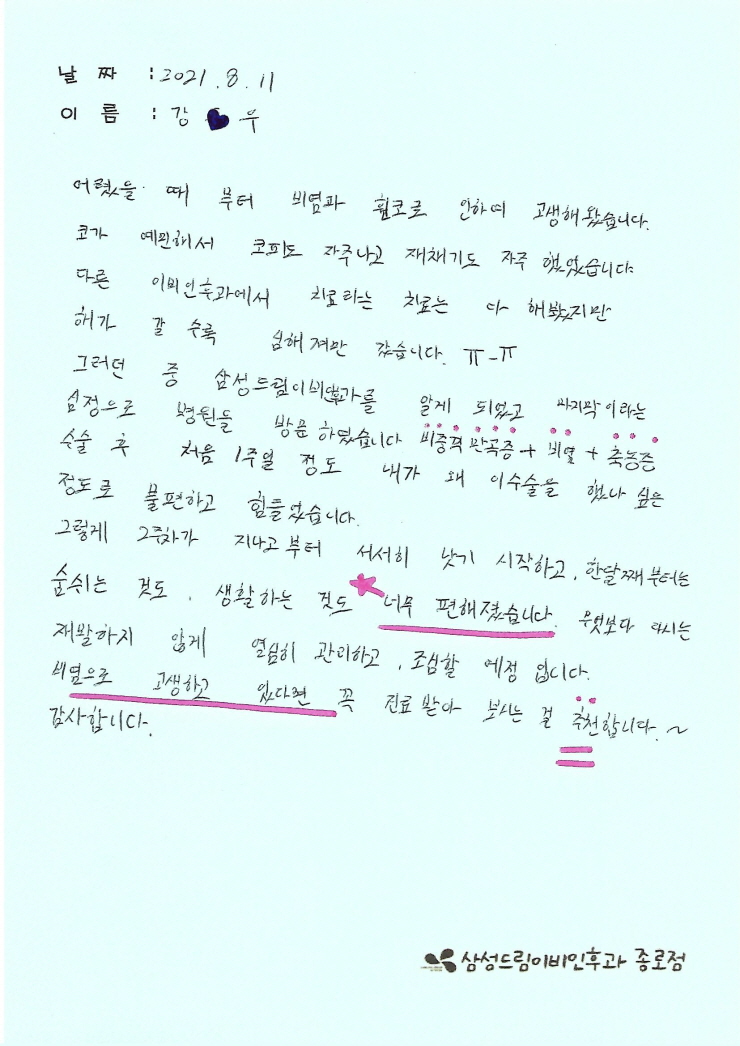 날 짜 : 2021. 8. 11
이 름 : 강 우
어렸을 때 부터 비염과 휜코로 인하여 고생해 왔습니다.
코가 예민해서 코피도 자주나고 재채기도 자주 했었습니다
다른 이비인후과에서 치료라는 치료는 다 해봤지만
해가 갈 수록 심해져만 갔습니다. ㅠ-ㅠ
그러던 중 삼성드림이비인후과를 알게 되었고 마지막이라는
심정으로 병원을 방문하였습니다 비중격만곡증 + 비염 + 축농증
수술 후 처음 1주일 정도 내가 왜 이수술을 했나 싶은
정도로 불편하고 힘들었습니다.
그렇게 2주차가 지나고부터 서서히 낫기 시작하고, 한달째부터는
숨쉬는 것도, 생활하는 것도 너무 편해졌습니다. 무엇보다 다시는
재발하지 않게 열심히 관리하고, 조심할 예정 입니다.
비염으로 고생하고 있다면 꼭 진료받아 보시는 걸 추천합니다.~
감사합니다.
삼성드림이비인후과 종로점